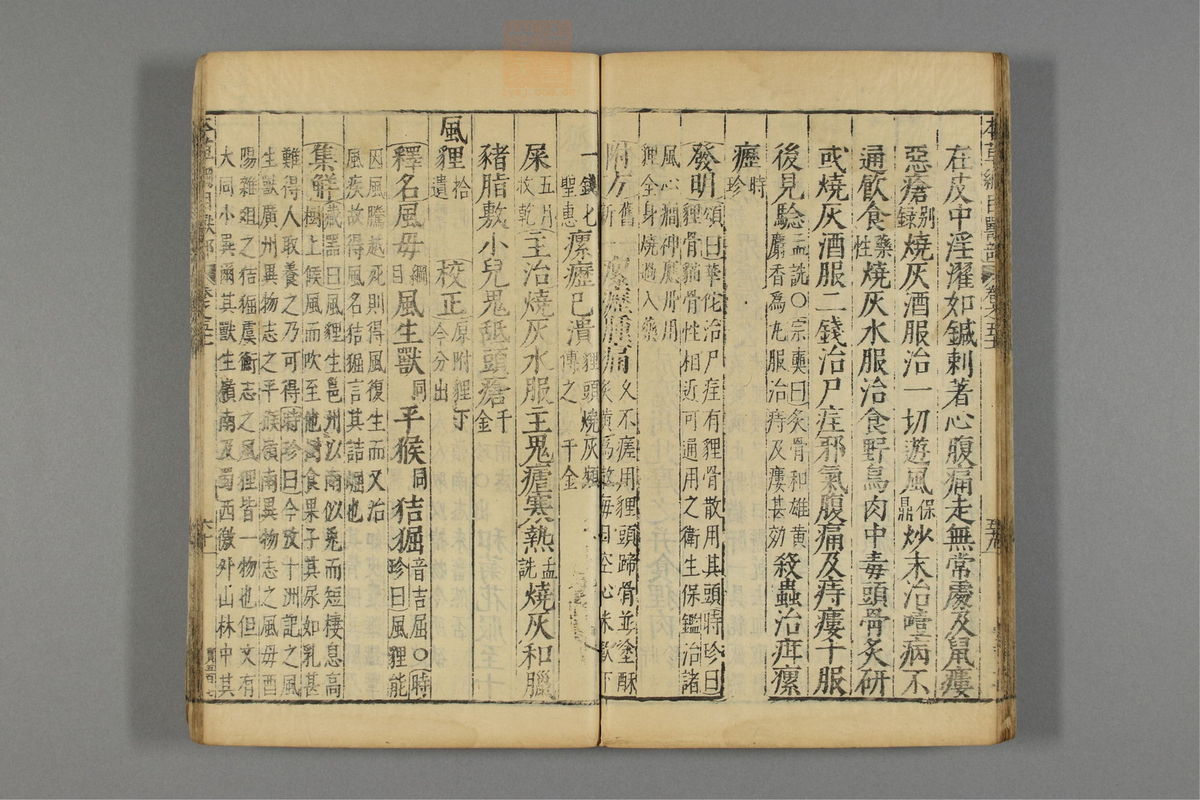 在皮中淫濯如鍼刺著心腹痛走無常處及鼠瘻
惡瘡别録燒灰酒服治一切遊風保鼎炒末治噎病不
通飲食藥性燒灰水服治食野鳥肉中毒頭骨炙研
或燒灰酒服二錢治尸疰邪氣腹痛及痔瘻十服
後見驗孟詵〇宗奭曰炙骨和雄黄麝香為丸服治痔及瘻甚効殺蟲治疳瘰
癧時珍
發明頌曰華佗治尸疰有狸骨散用其頭時珍曰狸骨猫骨性相近可通用之衛生保鑑治諸
風心癇神應丹用狸全身燒過入藥
附方舊一新一瘰癧腫痛久不瘥用狸頭蹄骨並塗酥炙黄為散每日空心米飲下
一錢匕聖惠瘰癧已潰狸頭燒灰頻傅之千金
屎五月收乾主治燒灰水服主鬼瘧寒熱孟詵燒灰和臘
豬脂敷小兒鬼䑛頭瘡千金
風狸拾遺校正原附狸下今分出
釋名風母綱目風生獸同平猴同狤𤟎音吉屈〇時珍曰風狸能
因風騰越死則得風復生而又治風疾故得風名狤𤟎言其詰崛也
集解藏器曰風狸生邕州以南似兔而短棲息高樹上候風而吹至他樹食果子其尿如乳甚
難得人取養之乃可得時珍曰今攷十洲記之風生獸廣州異物志之平猴嶺南異物志之風母酉
陽雜俎之狤𤟎虞衡志之風狸皆一物也但文有大同小異爾其獸生嶺南及蜀西徼外山林中其
本草綱目獸部
卷之五十一
六十